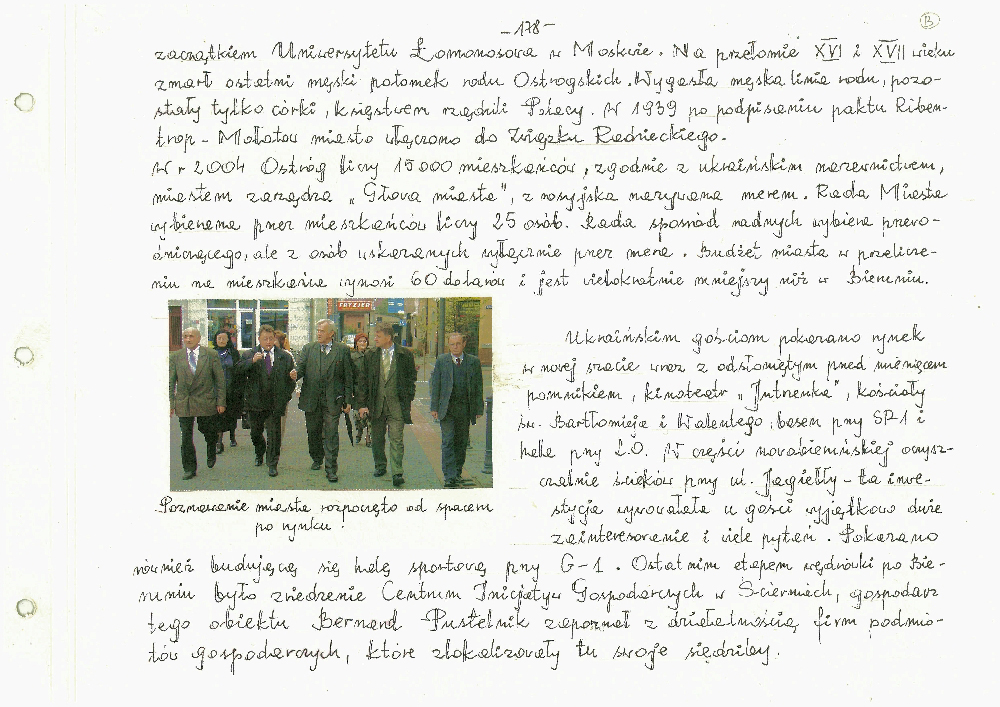 -178-
B
zaczątkiem Uniwersytetu Łomonosowa w Moskwie. Na przełomie XVI i XVII wieku
zmarł ostatni męski potomek rodu Ostrogskich. Wygasła męska linia rodu, pozo-
stały tylko córki, księstwem rządzili Polacy. W 1939 po podpisaniu paktu Riben-
trop - Mołotow miasto włączono do Związku Radzieckiego.
W r 2004 Ostróg liczy 15000 mieszkańców, zgodnie z ukraińskim nazewnictwem,
miastem zarządza "Głova miasta", z rosyjska nazywana merem. Rada Miasta
wybierana przez mieszkańców liczy 25 osób. Rada spośród radnych wybiera przewo-
dniczącego, ale z osób wskazanych wyłącznie przez mera. Budżet miasta w przelicze-
niu na mieszkańca wynosi 60 dolarów i jest wielokrotnie mniejszy niż w Bieruniu.
Ukraińskim gościom pokazano rynek
w nowej szacie wraz z odsłoniętym przed miesiącem
pomnikiem, kinoteatr "Jutrzenka", kościoły
św. Bartłomieja i Walentego, basen przy SP-1 i
halę przy LO. W części nowobieruńskiej oczysz-
czalnię ścieków przy ul. Jagiełły - ta inwe-
stycja wywołała u gości wyjątkowo duże
zainteresowanie i wiele pytań. Pokazano
Poznawanie miasta rozpoczęto od spaceru
po rynku.
również budującą się halę sportową przy G-1. Ostatnim etapem wędrówki po Bie-
runiu było zwiedzenie Centrum Inicjatyw Gospodarczych w Ścierniach, gospodarz
tego obiektu Bernard Pustelnik zapoznał z działalnością firm podmio-
tów gospodarczych, które zlokalizowały tu swoje siedziby.